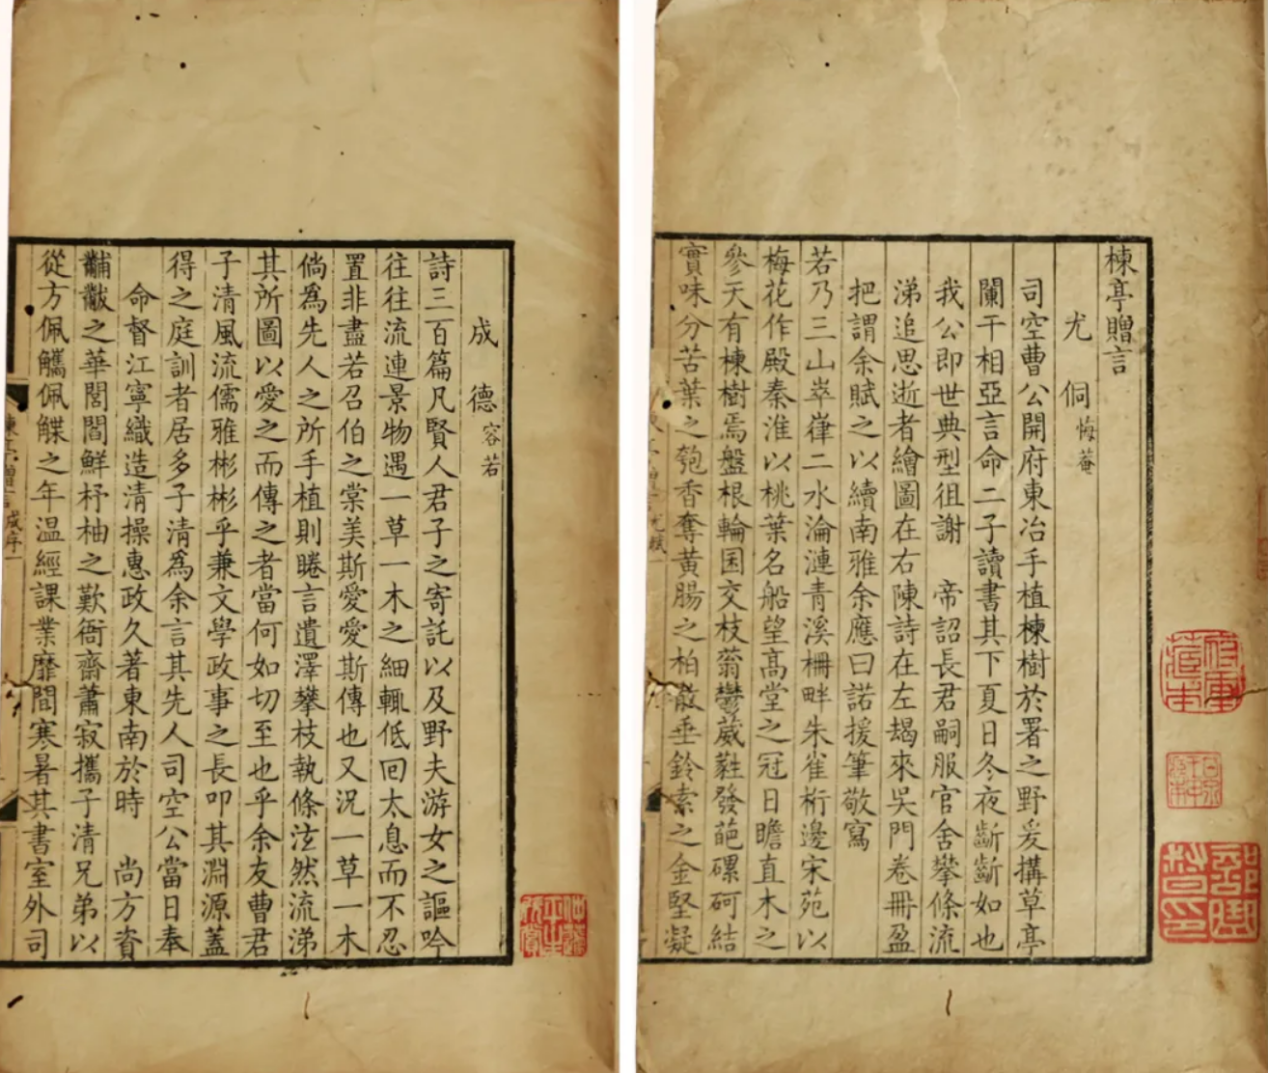 楝亭贈言
尤侗悔菴
司空曹公開府東冶手植楝樹於署之野爰搆草亭
闌干相亞言命二子讀書其下夏日冬夜斷斷如也
我公即世典型徂謝　帝詔長君嗣服官舍攀條流
涕追思逝者繪圖在右陳詩在左朅來吳門卷冊盈
把謂余賦之以續南雅余應曰諾援筆敬寫
若乃三山崒嵂二水淪漣青溪柵畔朱雀桁邊宋苑以
梅花作殿秦淮以桃葉名船望高堂之冠日瞻直木之
參天有楝樹焉盤根輪囷交枝蓊鬱葳蕤發葩磥砢結
實味分苦葉之匏香奪黃腸之柏散垂鈴索之金堅凝
成德容若
詩三百篇凡賢人君子之寄託以及野夫游女之謳吟
往往流連景物遇一草一木之細輒低回太息而不忍
置非盡若召伯之棠美斯愛愛斯傳也又況一草一木
倘為先人之所手植則睠言遺澤攀枝執條泫然流涕
其所圖以愛之而傳之者當何如切至也乎余友曹君
子清風流儒雅彬彬乎兼文學政事之長叩其淵源蓋
得之庭訓者居多子清為余言其先人司空公當日奉
命督江寧織造清操惠政久著東南於時　尚方資
黼黻之華閭閻鮮杼柚之歎衙齋蕭寂攜子清兄弟以
從方佩觿佩韘之年溫經課業靡間寒暑其書室外司